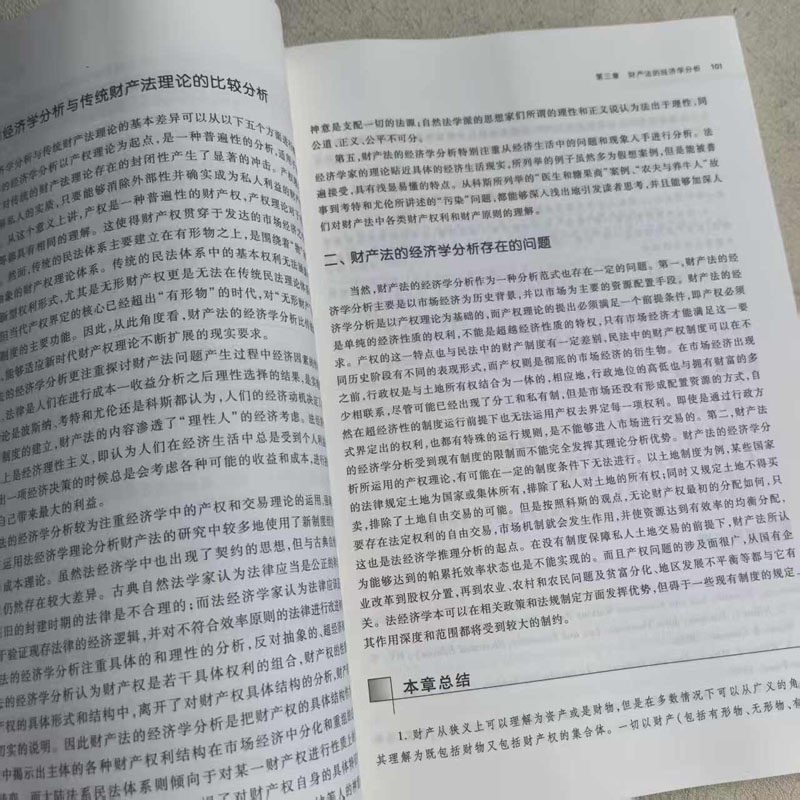 经济学分析与传统财产法理论的比较分析
济学分析与传统财产法理论的基本差异可以从以下五个方面
的经济学分析以产权理论为起点，是一种普遍性的分析，
对传统的财产法理论存在的封闭性产生了显著的冲击。产权
等私人的实质，只要能够消除外部性并确实成为私人利益的
。从这个意义上讲，产权是一种普遍性的财产权，产权理论对于
等都具有相同的理解。这使得财产权贯穿于发达的市场经济之
。然而，传统的民法体系主要建立在有形物之上，是围绕着
抽象的财产权理论体系。传统的民法体系中的基本权利无法涵
新型权利形式，尤其是无形财产权更是无法在传统民法理论体
但当代产权界定的核心已经超出“有形物”的时代，对“无形财产
制度的主要功能。因此，从此角度看，财产法的经济学分析比传统
，能够适应新时代财产权理论不断扩展的现实要求。
法的经济学分析更注重探讨财产法问题产生过程中经济因素的
，法律是人们在进行成本—收益分析之后理性选择的结果，是实
论是波斯纳、考特和尤伦还是科斯都认为，人们的经济动机决定
制度的建立，财产法的内容渗透了“理性人”的经济考虑。
上是经济理性主义，即认为人们在经济生活中总是受到个人利
出一项经济决策的时候总是会考虑各种可能的收益和成本，进行
自己带来最大的利益。
法的经济学分析较为注重经济学中的产权和交易理论的运用，
运用法经济学理论分析财产法的研究中较多地使用了新制度经
成本理论。虽然法经济学中也出现了契约的思想，但与古典自
仍然存在较大差异。古典自然法学家认为法律应当是公正的
旧的封建时期的法律是不合理的；而法经济学家认为法律应该
于验证现存法律的经济逻辑，并对不符合效率原则的法律进行改
法的经济学分析注重具体的和理性的分析，反对抽象的、超经济
法的经济学分析认为财产权是若干具体权利的组合，财产权的性
产权的具体形式和结构中，离开了对财产权具体结构的分析，财产
切实的说明。因此财产法的经济学分析是把财产权的具体结构
中揭示出主体的各种财产权利结构在市场经济中分化和重组的
。而大陆法系民法体系则倾向于对某一财产权进行性质上
了对财产权自身的具体特
第三章 财产法的经济学分析 101
神意是支配一切的法源；自然法学派的思想家们所谓的理性和正义说认为法出于理性，同
公道、正义、公平不可分。
第五，财产法的经济学分析特别注重从经济生活中的问题和现象入手进行分析。法
经济学家的理论贴近具体的经济生活现实，所列举的例子虽然多为假想案例，但是能被普
遍接受，具有浅显易懂的特点。从科斯所列举的“医生和糖果商”案例、“农夫与养牛人”故
事到考特和尤伦所讲述的“污染”问题，都能够深入浅出地引发读者思考，并且能够加深人
们对财产法中各类财产权利和财产原则的理解。
二、财产法的经济学分析存在的问题
当然，财产法的经济学分析作为一种分析范式也存在一定的问题。第一，财产法的经
济学分析主要是以市场经济为历史背景，并以市场为主要的资源配置手段。财产法的经
济学分析是以产权理论为基础的，而产权理论的提出必须满足一个前提条件，即产权必须
是单纯的经济性质的权利，不能是超越经济性质的特权，只有市场经济才能满足这一要
求。产权的这一特点也与民法中的财产制度有一定差别，民法中的财产权制度可以在不
同历史阶段有不同的表现形式，而产权则是彻底的市场经济的衍生物。在市场经济出现
之前，行政权是与土地所有权结合为一体的，相应地，行政地位的高低也与拥有财富的多
少相联系，尽管可能已经出现了分工和私有制，但是市场还没有形成配置资源的方式，自
然在超经济性的制度运行前提下也无法运用产权去界定每一项权利。即使是通过行政方
式界定出的权利，也都有特殊的运行规则，是不能够进入市场进行交易的。第二，财产法
的经济学分析受到现有制度的限制而不能完全发挥其理论分析优势。财产法的经济学分
析所运用的产权理论，有可能在一定的制度条件下无法进行。以土地制度为例，某些国家
的法律规定土地为国家或集体所有，排除了私人对土地的所有权；同时又规定土地不得买
卖，排除了土地自由交易的可能。但是按照科斯的观点，无论财产权最初的分配如何，只
要存在法定权利的自由交易，市场机制就会发生作用，并使资源达到有效率的均衡分配，
这也是法经济学推理分析的起点。在没有制度保障私人土地交易的前提下，财产法所认
为能够达到的帕累托效率状态也是不能实现的。而且产权问题的涉及面很广，从国有企
业改革到股权分置，再到农业、农村和农民问题及贫富分化、地区发展不平衡等都与它有
关。法经济学本可以在相关政策和法规制定方面发挥优势，但碍于一些现有制度的规定，
其作用深度和范围都将受到较大的制约。
本章总结
1. 财产从狭义上可以理解为资产或是财物，但是在多数情况下可以从广义的角
其理解为既包括财物又包括财产权的集合体。一切以财产(包括有形物、无形物、有